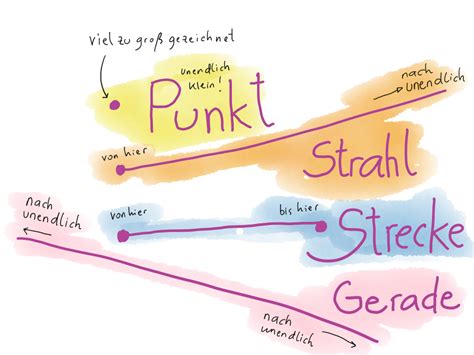 viel zu groß gezeichnet
unendlich
klein!
Punkt
nach
unendlich
von hier
Strahl
nach
unendlich
von hier
bis hier
Strecke
Gerade
nach
unendlich